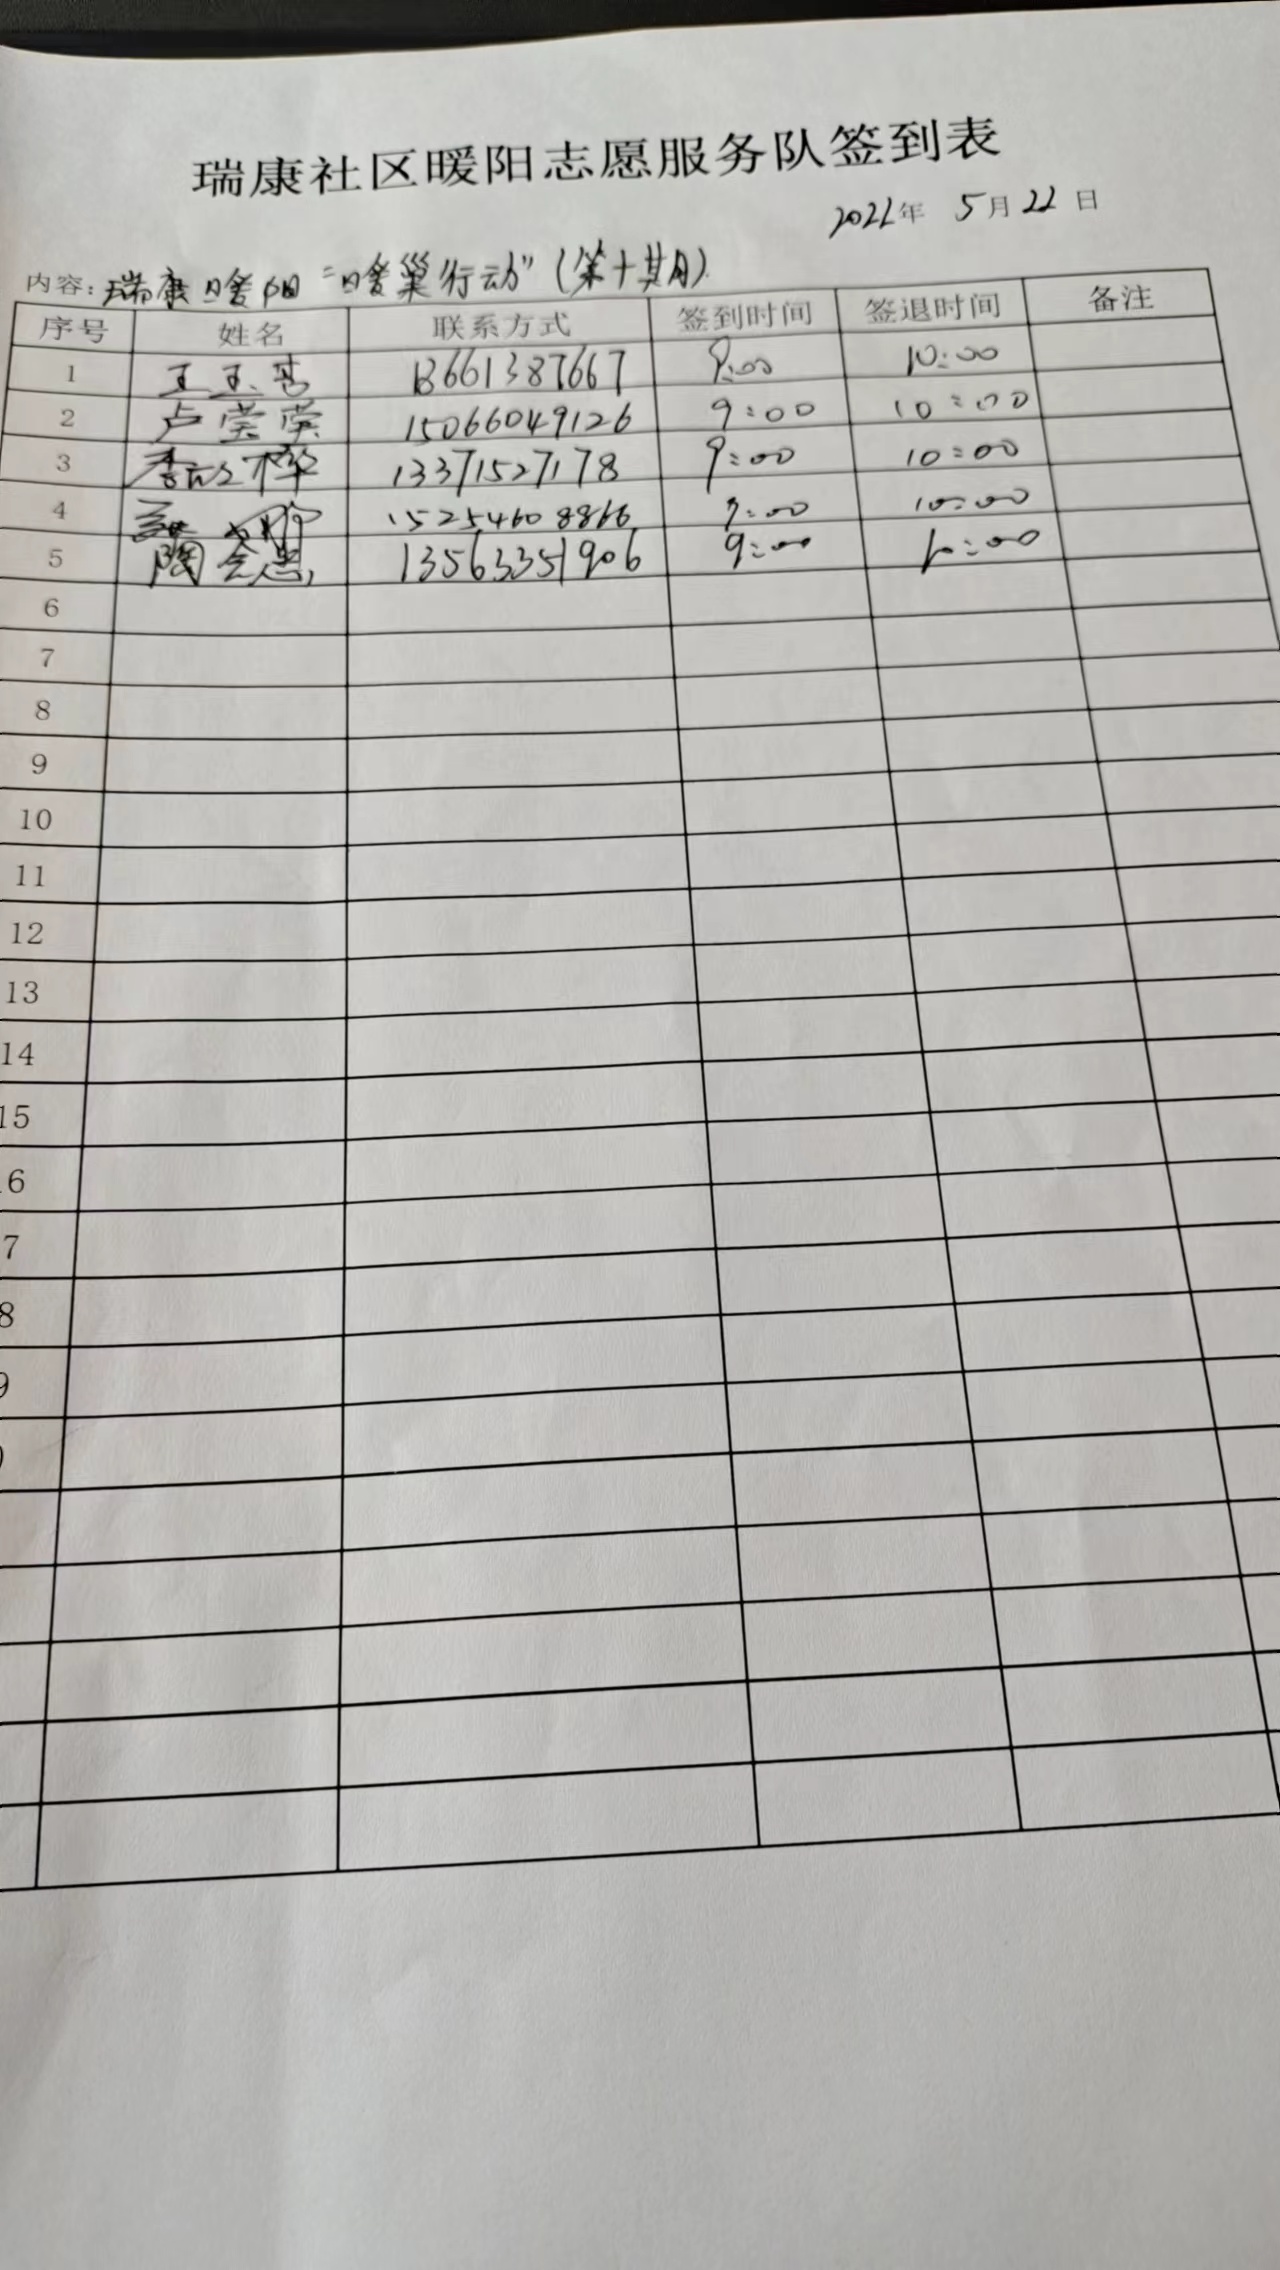 瑞康社区暖阳志愿服务队签到表
2022年 5月22日
内容：瑞康暖阳“暖巢行动”（第十期）
序号 姓名 联系方式 签到时间 签退时间 备注
1 王玉 13661387667 9:00 10:00
2 卢莹莹 15066049126 9:00 10:00
3 李 梓 13371527178 9:00 10:00
4 15254608866 9:00 10:00
5 陶 13563351906 9:00 10:00
6
7
8
9
10
11
12
13
14
15
6
7
8
9